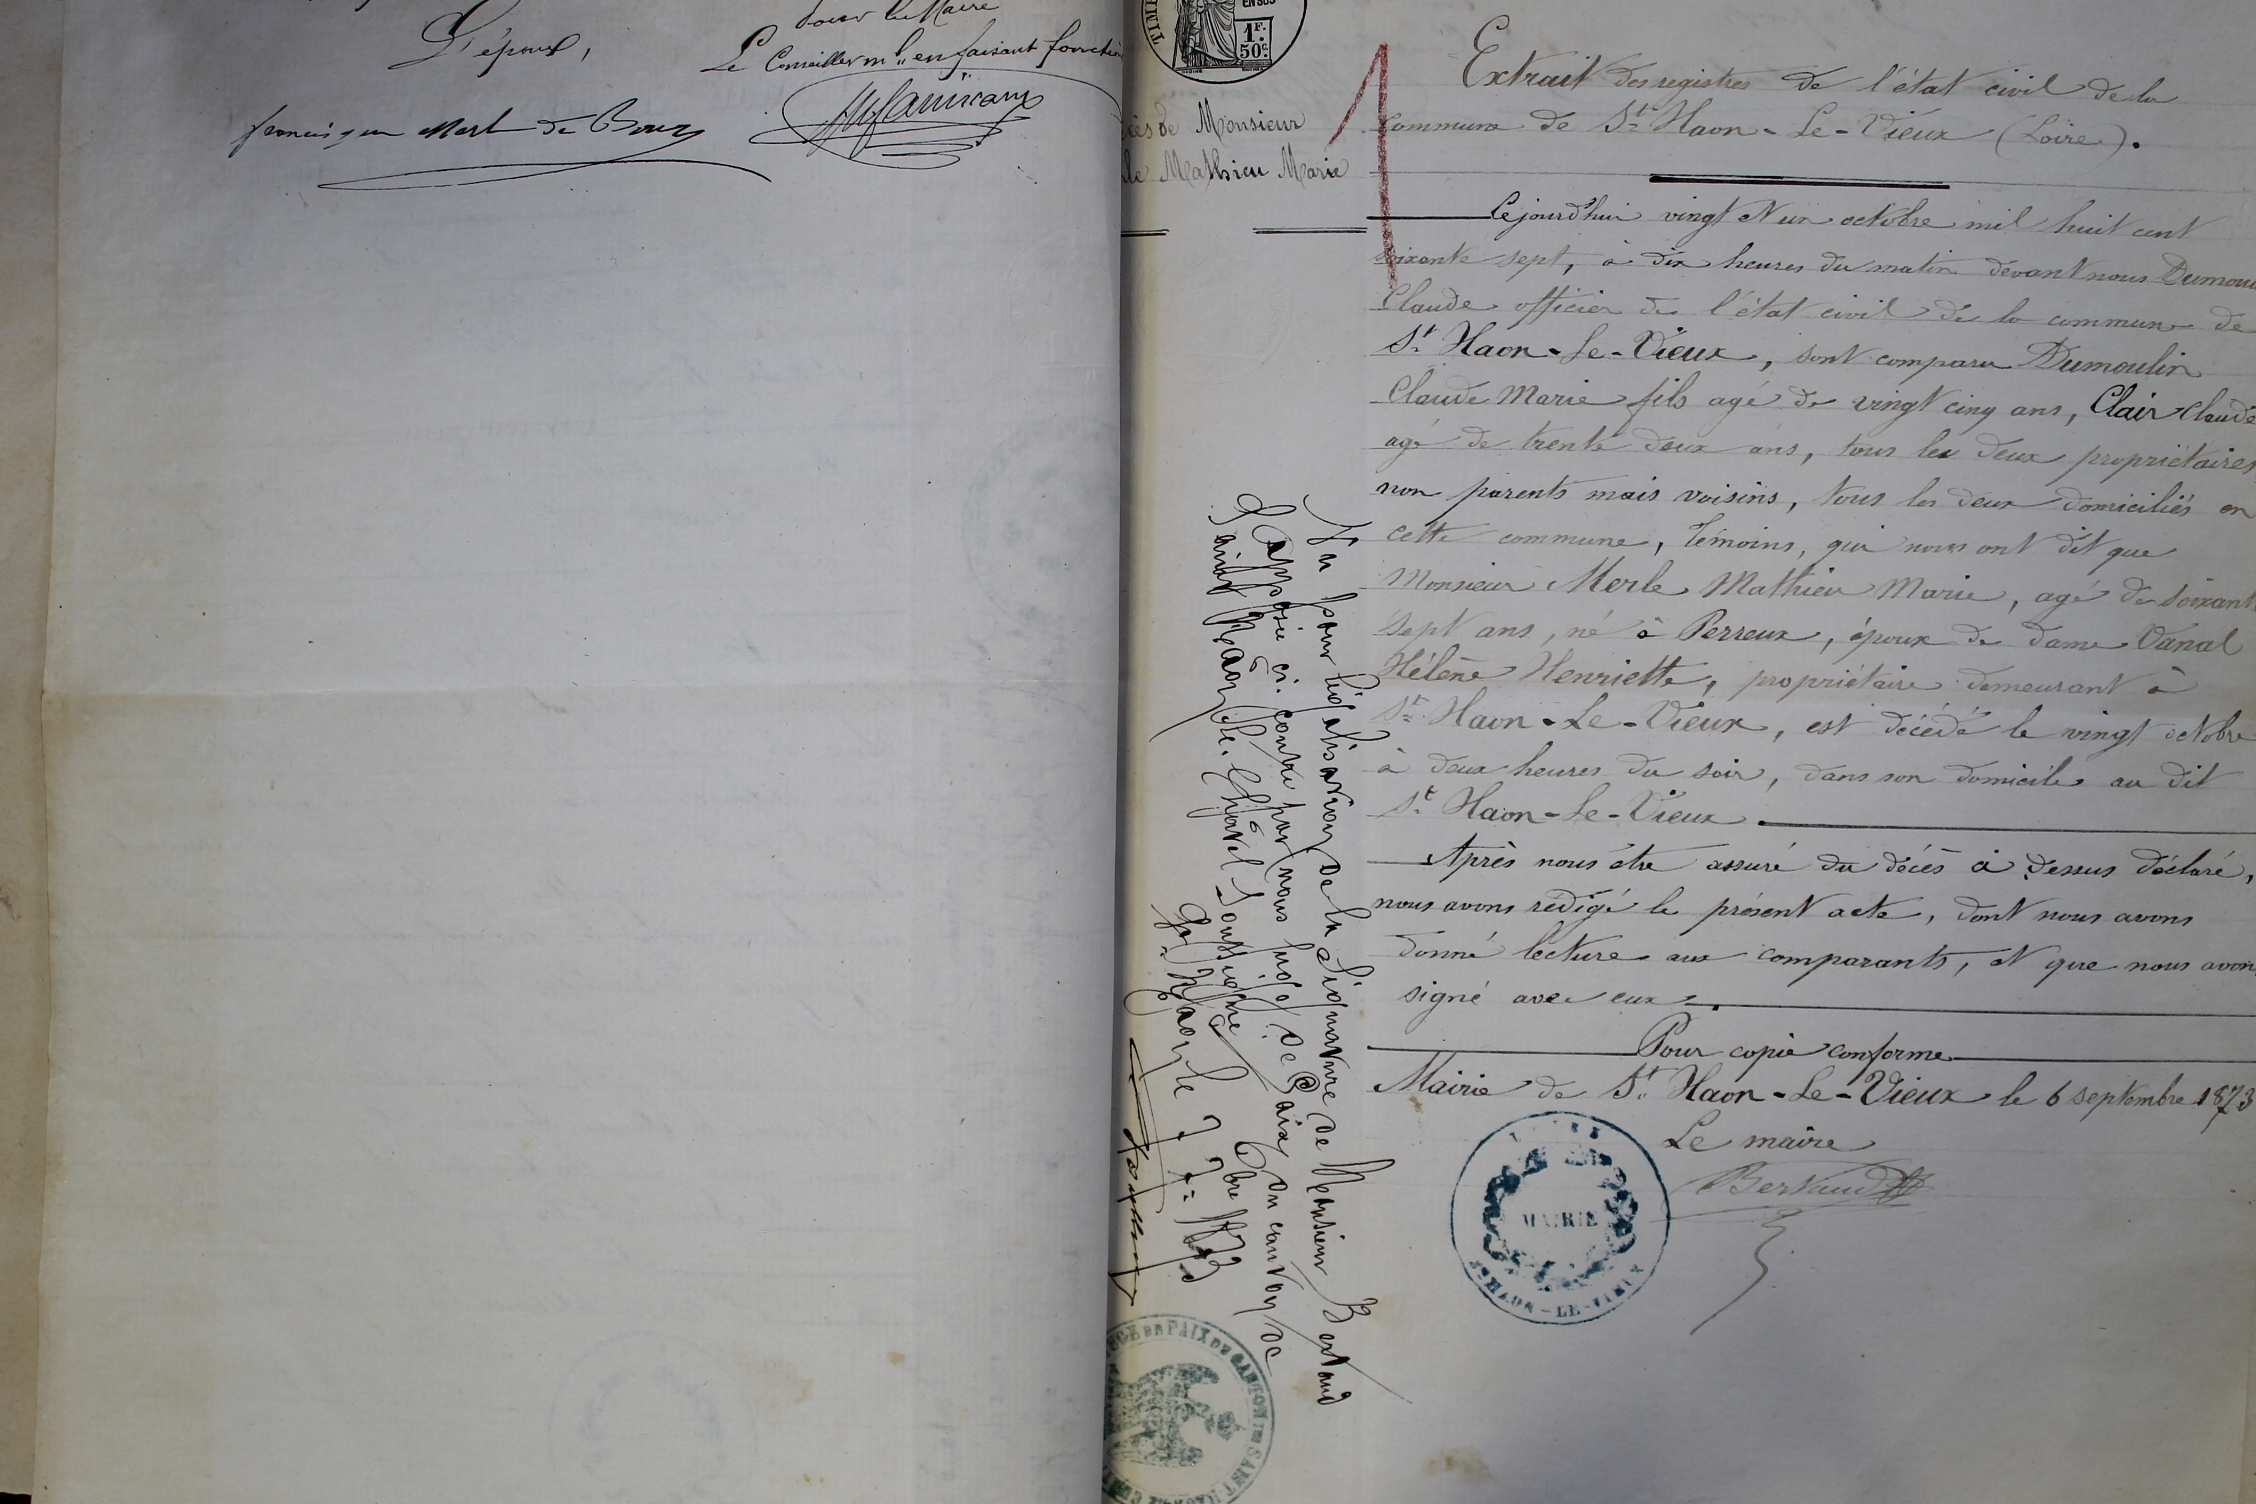 L'époux,
pour le Maire
Le Conseiller m.l en faisant fonction
francisque Merle Du Bourg
EN SUS
1F.
50c.
Décès de Monsieur
Merle Mathieu Marie
Extrait des registres de l'état civil de la
commune de St Haon-Le-Vieux (Loire).
Cejourd'hui vingt et un octobre mil huit cent
soixante sept, à dix heures du matin devant nous Dumoulin
Claude officier de l'état civil de la commune de
St Haon-Le-Vieux, sont comparu Dumoulin
Claude Marie fils agé de vingt cinq ans, Clair Claude
agé de trente deux ans, tous les deux propriétaires
non parents mais voisins, tous les deux domiciliés en
cette commune, témoins, qui nous ont dit que
Monsieur Merle Mathieu Marie, agé de soixante
sept ans, né à Perreux, époux de dame Vanal
Hélène Henriette, propriétaire demeurant à
St Haon-Le-Vieux, est décédé le vingt octobre
à deux heures du soir, dans son domicile au dit
St Haon-Le-Vieux.
Après nous être assuré du décès ci dessus déclaré,
nous avons rédigé le présent acte, dont nous avons
donné lecture aux comparants, et que nous avons
signé avec eux.
Pour copie conforme
Mairie de St Haon-Le-Vieux le 6 septembre 1873
Le maire
Bertaud
MAIRIE
ST HAON-LE-VIEUX
Vu pour légalisation de la signature de Monsieur Bertaud
apposée ci-contre par nous juge de Paix du canton de
Saint Haon-le-Chatel soussigné
St Haon le 7 7bre 1873
JUGE DE PAIX DU CANTON DE SAINT HAON